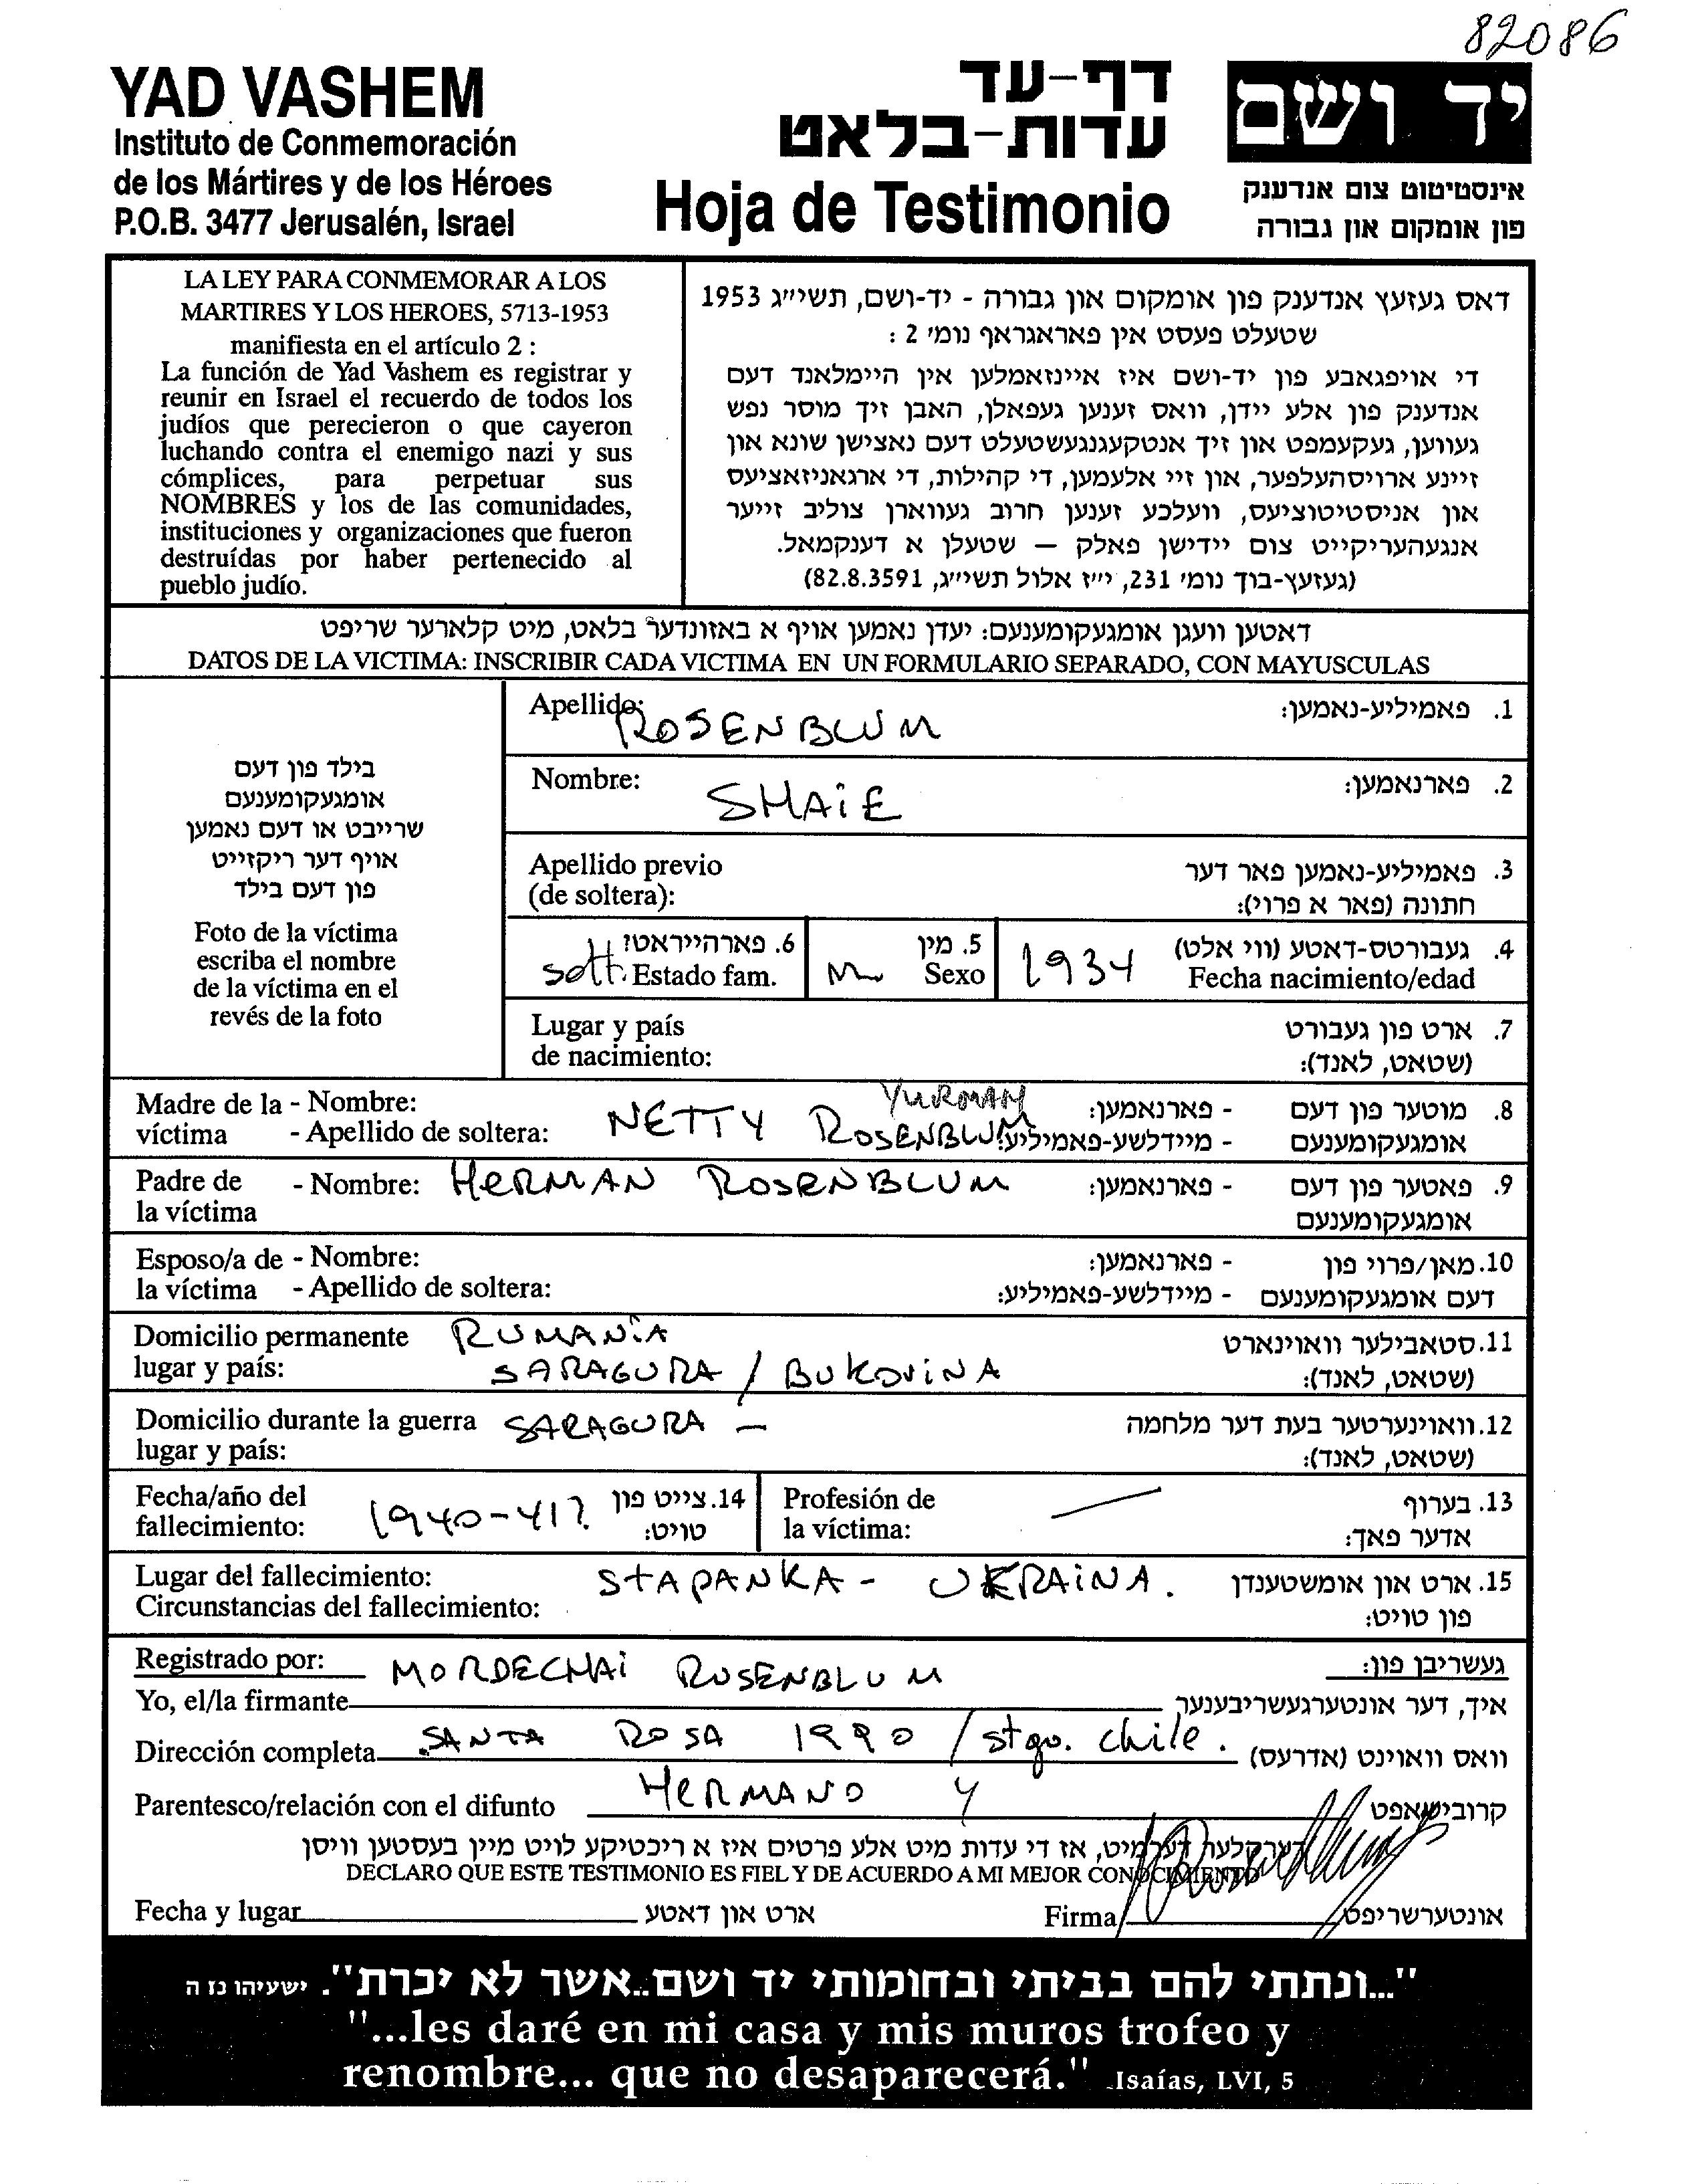 82086
YAD VASHEM
Instituto de Conmemoración
de los Mártires y de los Héroes
P.O.B. 3477 Jerusalén, Israel
דף-עד
עדות-בלאט
Hoja de Testimonio
יד ושם
אינסטיטוט צום אנדענק
פון אומקום און גבורה
LA LEY PARA CONMEMORAR A LOS
MARTIRES Y LOS HEROES, 5713-1953
manifiesta en el artículo 2 :
La función de Yad Vashem es registrar y
reunir en Israel el recuerdo de todos los
judíos que perecieron o que cayeron
luchando contra el enemigo nazi y sus
cómplices, para perpetuar sus
NOMBRES y los de las comunidades,
instituciones y organizaciones que fueron
destruídas por haber pertenecido al
pueblo judío.
דאס געזעץ אנדענק פון אומקום און גבורה - יד-ושם, תשי״ג 1953
שטעלט פעסט אין פאראגראף נומ׳ 2 :
די אויפגאבע פון יד-ושם איז איינזאמלען אין היימלאנד דעם
אנדענק פון אלע יידן, וואס זענען געפאלן, האבן זיך מוסר נפש
געווען, געקעמפט און זיך אנטקעגנגעשטעלט דעם נאצישן שונא און
זיינע ארויסהעלפער, און זיי אלעמען, די קהילות, די ארגאניזאציעס
און אניסטיטוציעס, וועלכע זענען חרוב געווארן צוליב זייער
אנגעהעריקייט צום יידישן פאלק — שטעלן א דענקמאל.
(געזעץ-בוך נומ׳ 231, י״ז אלול תשי״ג, 82.8.3591)
דאטען וועגן אומגעקומענעם: יעדן נאמען אויף א באזונדער בלאט, מיט קלארער שריפט
DATOS DE LA VICTIMA: INSCRIBIR CADA VICTIMA EN UN FORMULARIO SEPARADO, CON MAYUSCULAS
בילד פון דעם
אומגעקומענעם
שרייבט או דעם נאמען
אויף דער ריקזייט
פון דעם בילד
Foto de la víctima
escriba el nombre
de la víctima en el
revés de la foto
Apellido: ROSENBLUM 1. פאמיליע-נאמען:
Nombre: SHAiE 2. פארנאמען:
Apellido previo 3. פאמיליע-נאמען פאר דער
(de soltera): חתונה (פאר א פרוי):
6. פארהייראט? 5. מין 4. געבורטס-דאטע (ווי אלט)
solt. Estado fam. M Sexo 1934 Fecha nacimiento/edad
Lugar y país 7. ארט פון געבורט
de nacimiento: (שטאט, לאנד):
YURMAN
Madre de la - Nombre: - פארנאמען: 8. מוטער פון דעם
víctima - Apellido de soltera: NETTY ROSENBLUM - מיידלשע-פאמיליע: אומגעקומענעם
Padre de - Nombre: HERMAN ROSENBLUM - פארנאמען: 9. פאטער פון דעם
la víctima אומגעקומענעם
Esposo/a de - Nombre: - פארנאמען: 10. מאן/פרוי פון
la víctima - Apellido de soltera: - מיידלשע-פאמיליע: דעם אומגעקומענעם
Domicilio permanente RUMANiA 11. סטאבילער וואוינארט
lugar y país: SARAGURA / BUKOViNA (שטאט, לאנד):
Domicilio durante la guerra SARAGURA — 12. וואוינערטער בעת דער מלחמה
lugar y país: (שטאט, לאנד):
Fecha/año del 1940-41? 14. צייט פון Profesión de 13. בערוף
fallecimiento: טויט: la víctima: אדער פאך:
Lugar del fallecimiento: STAPANKA - UKRAiNA. 15. ארט און אומשטענדן
Circunstancias del fallecimiento: פון טויט:
Registrado por: MORDECHAi ROSENBLUM געשריבן פון:
Yo, el/la firmante איך, דער אונטערגעשריבענער
Dirección completa SANTA ROSA 1990 / stgo. chile. וואס וואוינט (אדרעס)
Parentesco/relación con el difunto HERMANO קרובישאפט
דערקלער דערמיט, אז די עדות מיט אלע פרטים איז א ריכטיקע לויט מיין בעסטען וויסן
DECLARO QUE ESTE TESTIMONIO ES FIEL Y DE ACUERDO A MI MEJOR CONOCIMIENTO
Fecha y lugar ארט און דאטע Firma אונטערשריפט
"...ונתתי להם בביתי ובחומותי יד ושם...אשר לא יכרת". ישעיהו נז ה
"...les daré en mi casa y mis muros trofeo y
renombre... que no desaparecerá." Isaías, LVI, 5